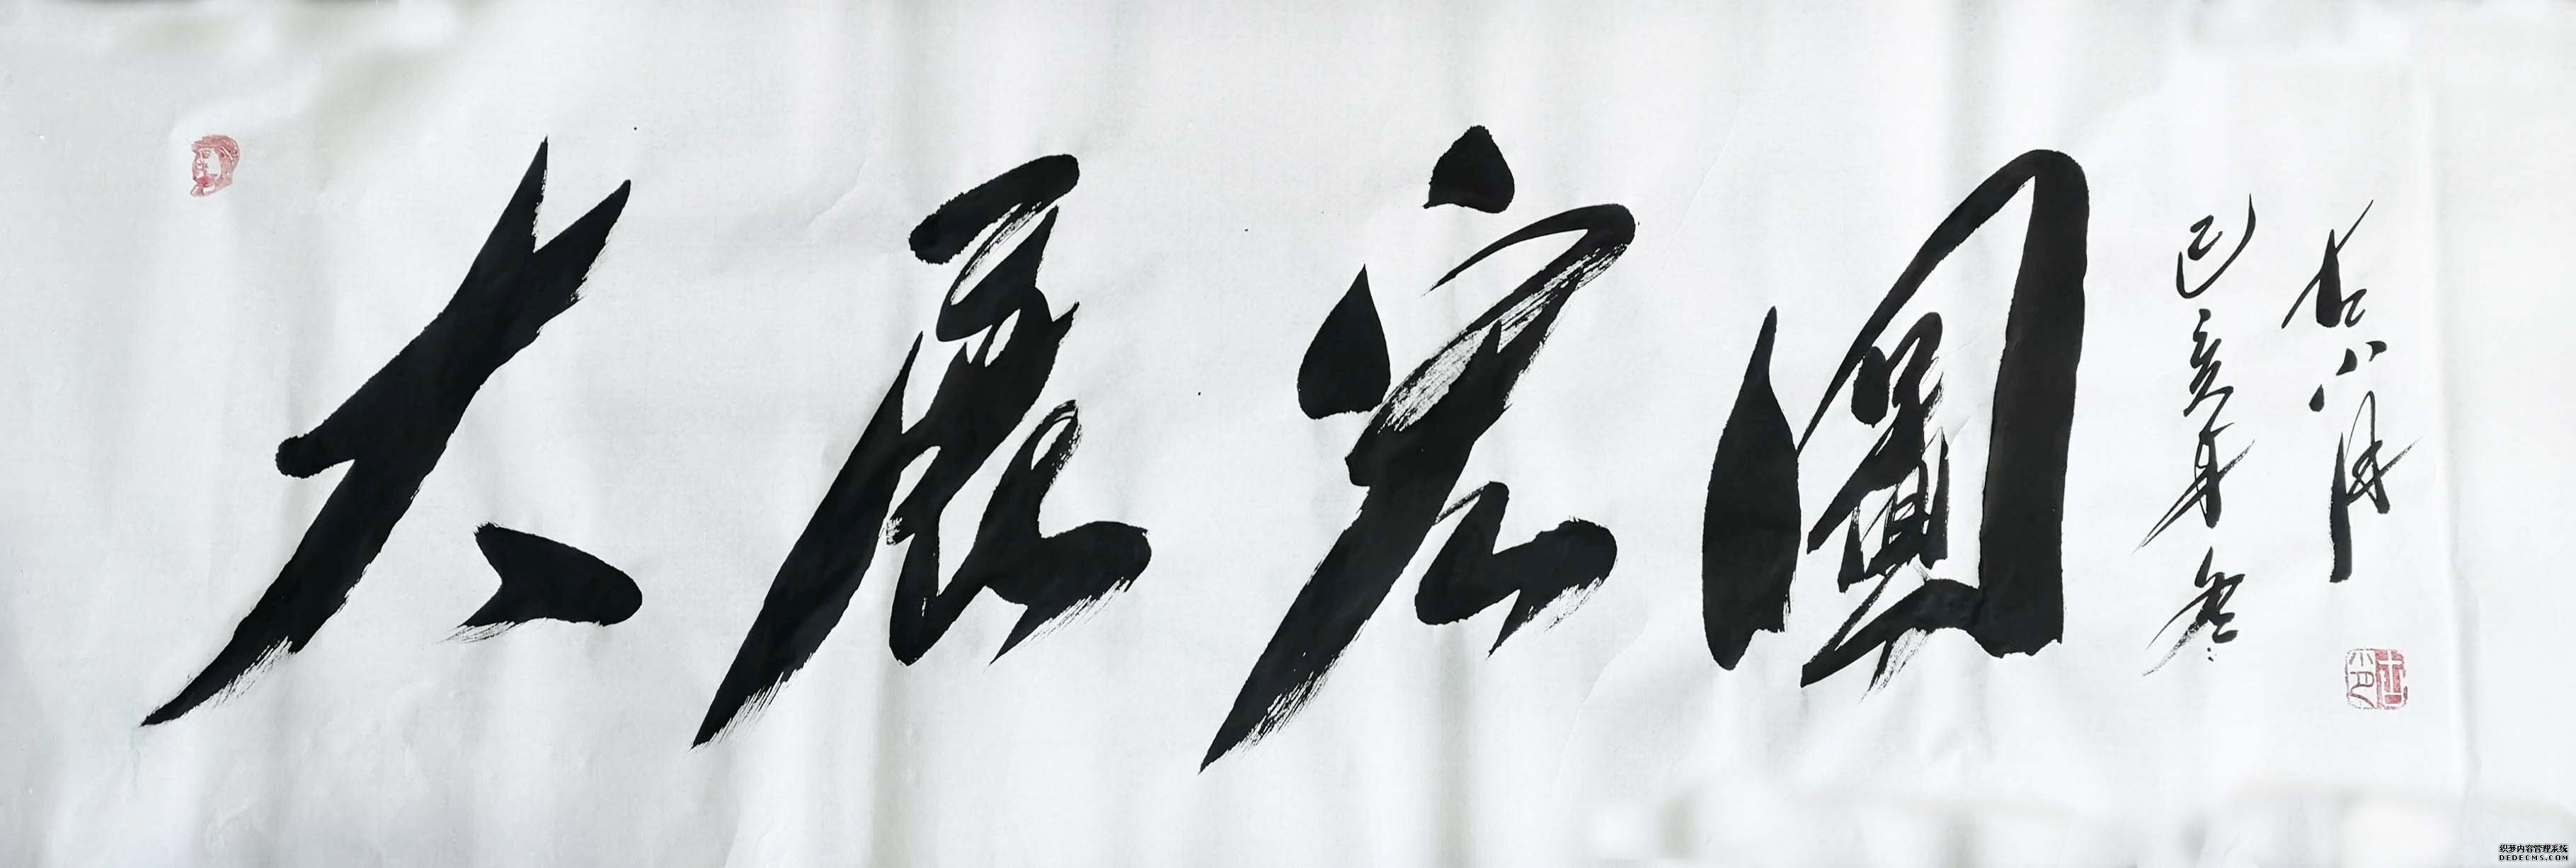 大展宏圖
己亥年冬
古小月
织梦内容管理系统
DEDECMS.COM